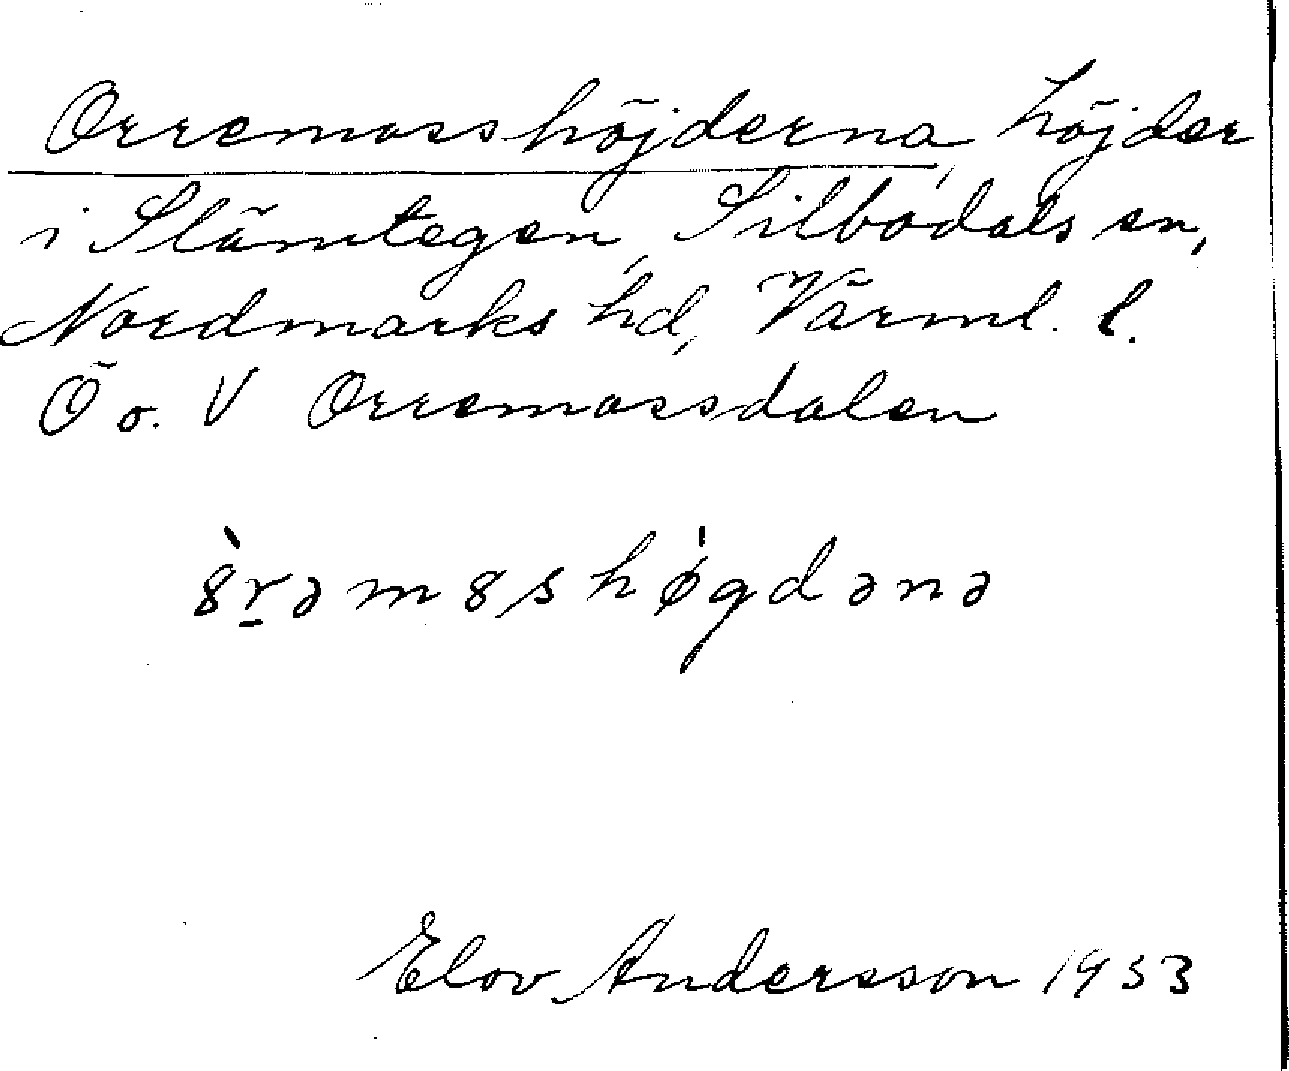 Orremosshöjderna, höjder
i Slämtegen, Silbodals sn,
Nordmarks hd, Värml. l.
Ö o. V Orremossdalen
8̀rəm8shǿgdənə
Elov Andersson 1933